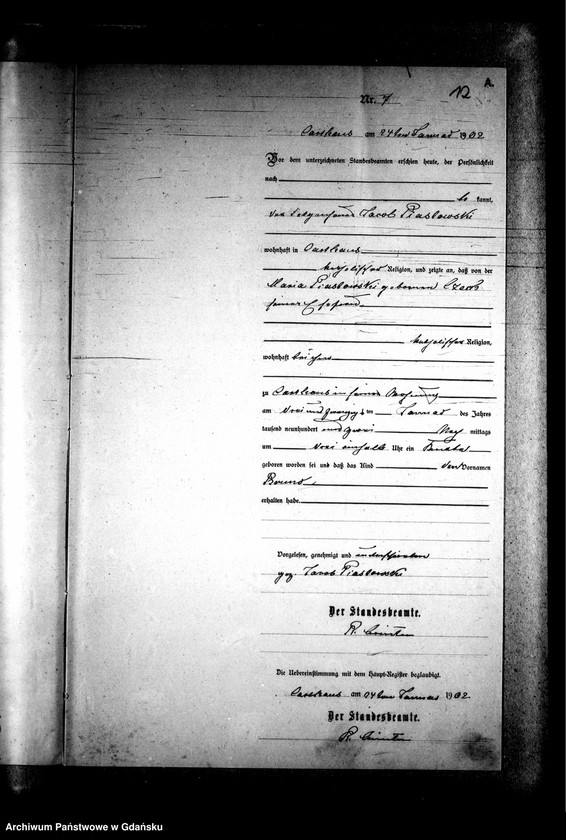 A.
12
Nr. 7
Carthaus am 24ten Januar 1902
Vor dem unterzeichneten Standesbeamten erschien heute, der Persönlichkeit
nach
be kannt,
Jacob Piastowski
wohnhaft in Carthaus
katholischer Religion, und zeigte an, daß von der
Maria Piastowski geborenen
seiner Ehefrau
katholischer Religion,
wohnhaft bei ihm
zu Carthaus in seiner Wohnung
am drei und zwanzigsten Januar des Jahres
tausend neunhundert und zwei Nach mittags
um drei einhalb Uhr ein Knabe
geboren worden sei und daß das Kind den Vornamen
Bruno
erhalten habe.
Vorgelesen, genehmigt und unterschrieben
gez. Jacob Piastowski
Der Standesbeamte.
R.
Die Uebereinstimmung mit dem Haupt-Register beglaubigt.
Carthaus am 24ten Januar 1902
Der Standesbeamte.
R.
Archiwum Państwowe w Gdańsku